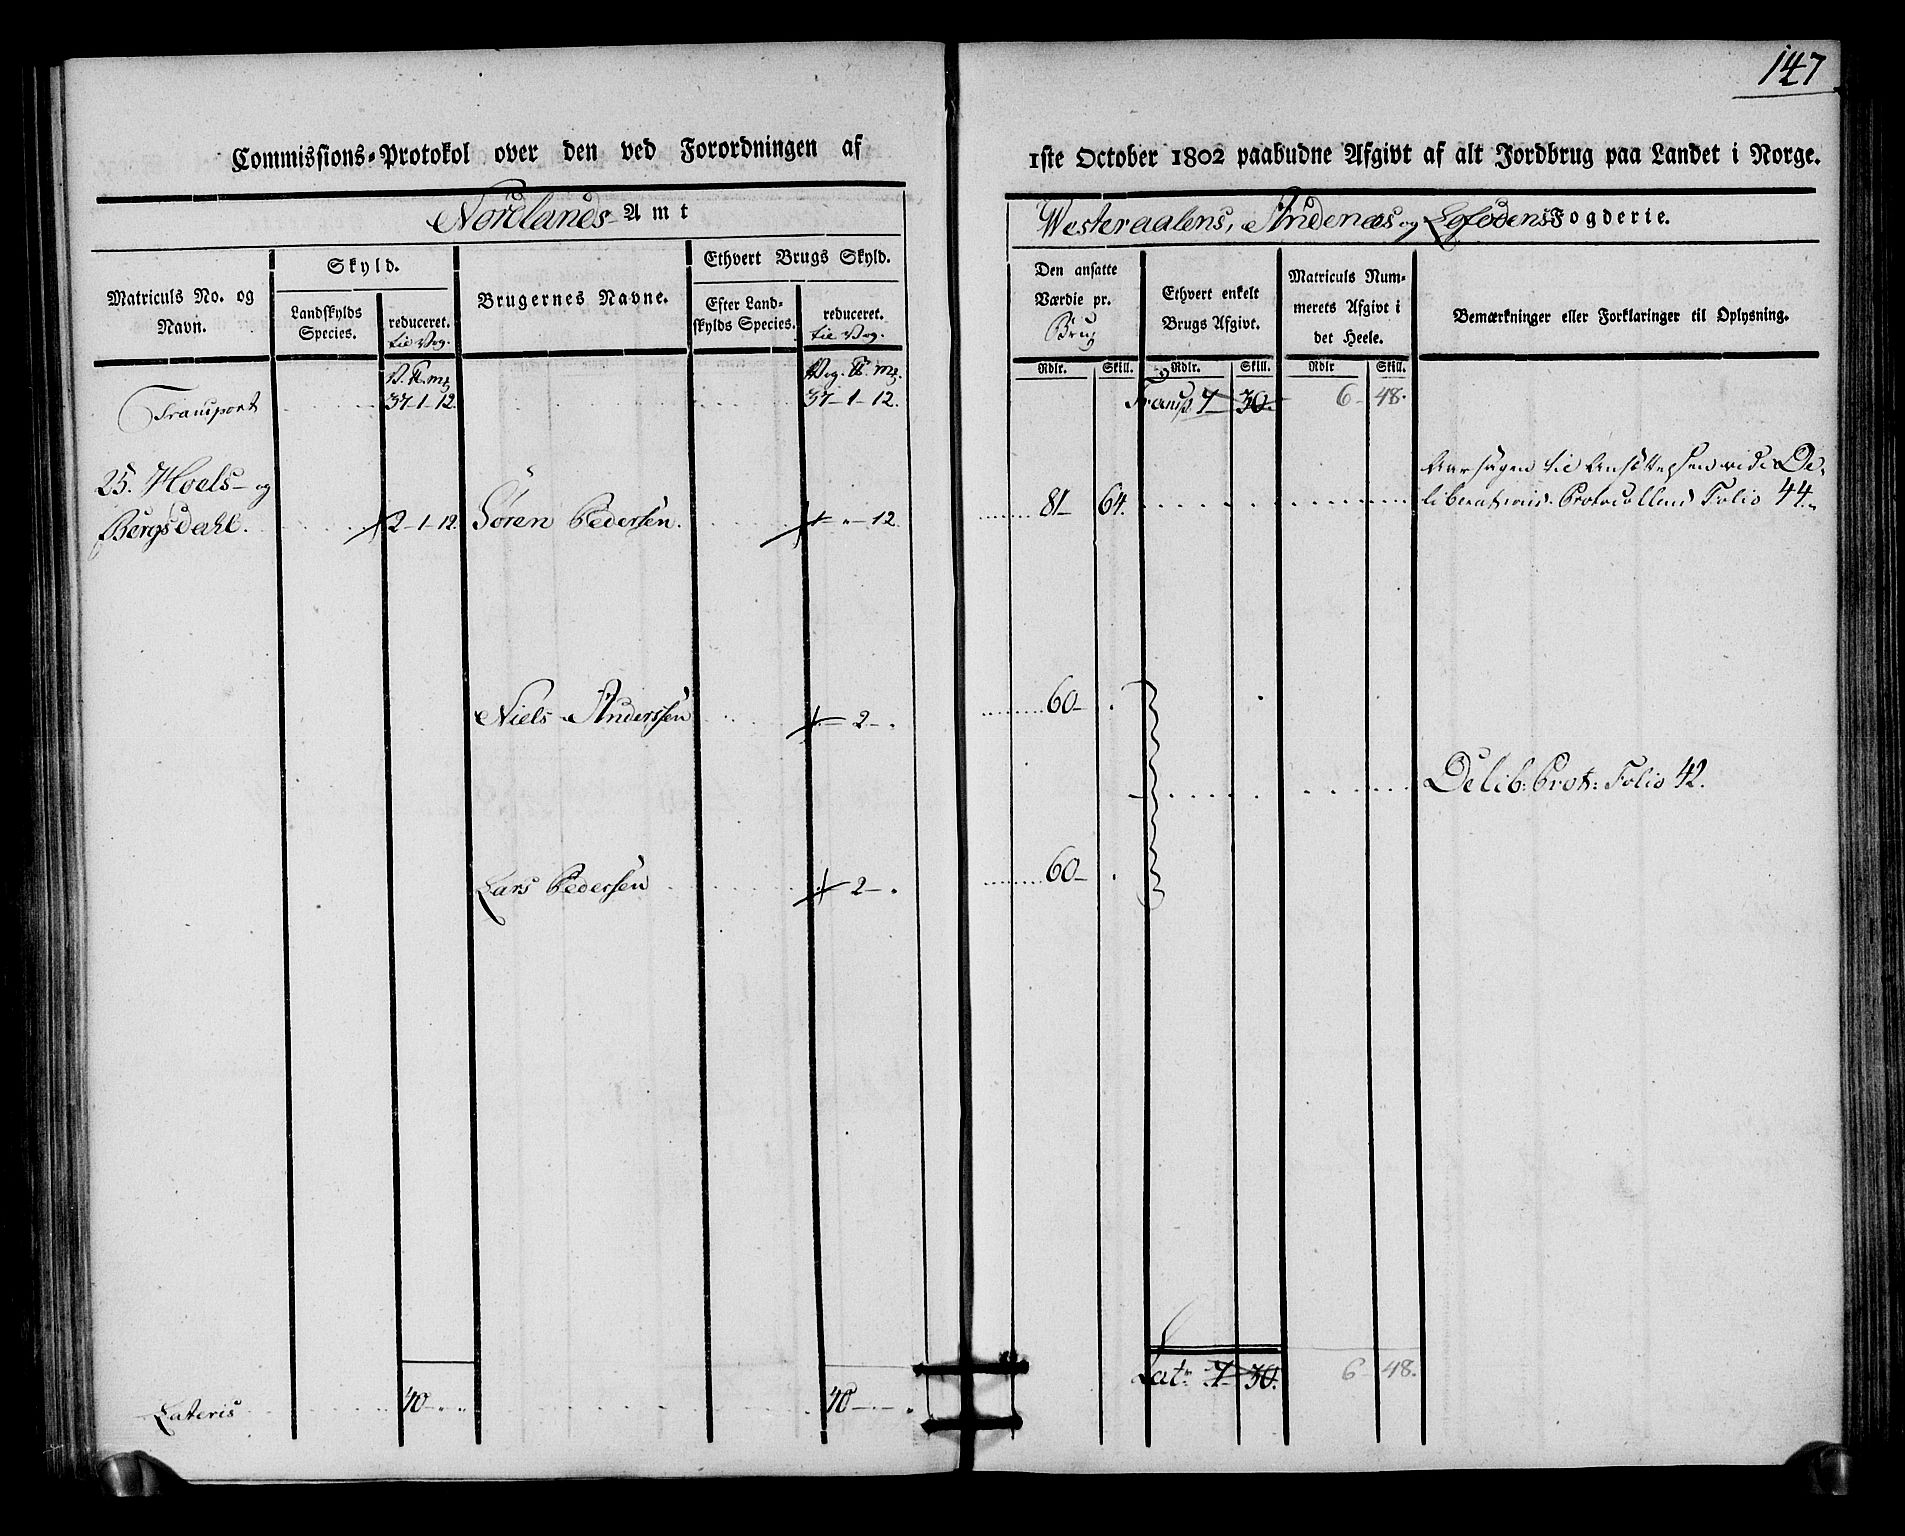 147
Commissions-Protokol over den ved Forordningen af 1ste October 1802 paabudne Afgivt af alt Jordbrug paa Landet i Norge.
Nordlands Amt
Westeraalens, Andenæs og Lofodens Fogderie.
Matriculs No. og Navn.
Skyld.
Landskylds Species.
reduceret. til Vog.
Brugernes Navne.
Ethvert Brugs Skyld.
Efter Landskylds Species.
reduceret. til Vog.
Den ansatte Værdie pr. Brug
Rdlr. Skill.
Ethvert enkelt Brugs Afgivt.
Rdlr. Skill.
Matriculs Nummerets Afgivt i det Heele.
Rdlr Skill.
Bemærkninger eller Forklaringer til Oplysning.
V. ℔. mg.
Vog. ℔. mg.
Transport 37-1-12. 37-1-12. Transp. 7- 30. 6- 48.
25. Hoels- og
Bergsdahl. 2-1-12. Søren Pedersen. 1- " -12. 81- 64. Aarsagen til Ansættelsen vide De-
liberations-Protocollens Folio 44.
Niels Anderssen 2- 60-
Delib: Prot: Folio 42.
Lars Pedersen 2- 60-
Lateris 40 40 Latr 7- 30. 6- 48.